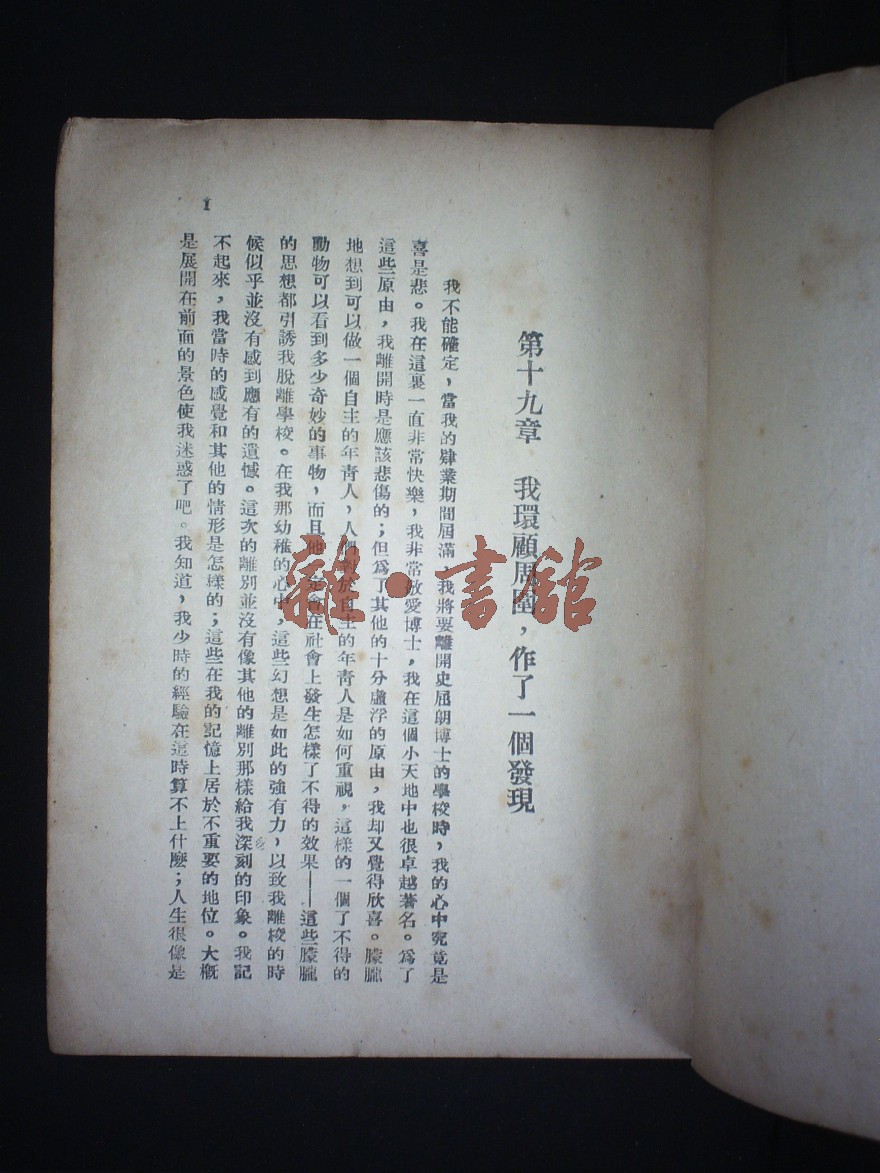 第十九章 我環顧周圍，作了一個發現
我不能確定，當我的肄業期間屆滿，我將要離開史屈朝博士的學校時，我的心中究竟是
喜是悲。我在這裏一直非常快樂，我非常敬愛博士，我在這個小天地中也很卓越著名。爲了
這些原由，我離開時是應該悲傷的；但爲了其他的十分虛浮的原由，我却又覺得欣喜。朦朧
地想到可以做一個自主的年靑人，人們對於自主的年靑人是如何重視，這樣的一個了不得的
動物可以看到多少奇妙的事物，而且他一定會在社會上發生怎樣了不得的效果——這些朦朧
的思想都引誘我脫離學校。在我那幼稚的心中，這些幻想是如此的強有力，以致我離校的時
候似乎並沒有感到應有的遺憾。這次的離別並沒有像其他的離別那樣給我深刻的印象。我記
不起來，我當時的感覺和其他的情形是怎樣的；這些在我的記憶上居於不重要的地位。大概
是展開在前面的景色使我迷惑了吧。我知道，我少時的經驗在這時算不上什麽；人生很像是
1
雜·書館